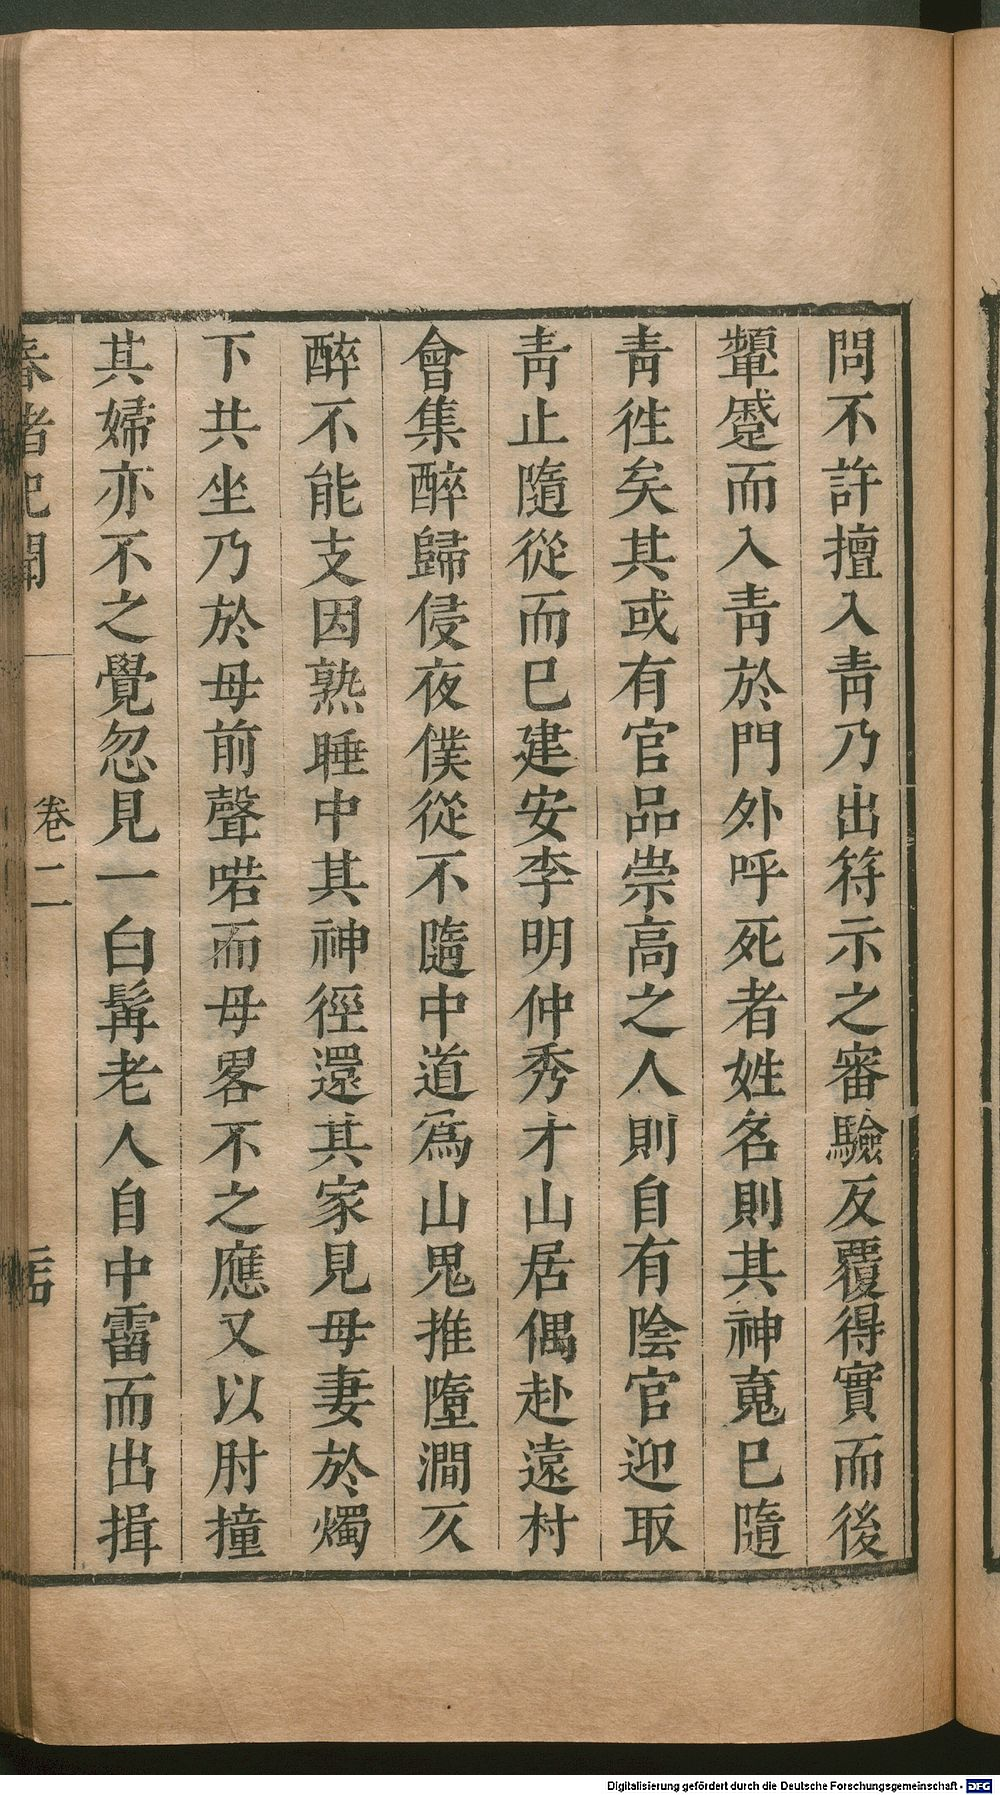 問不許擅入靑乃出符示之審驗反覆得實而後
顰蹙而入靑於門外呼死者姓名則其神䰟巳隨
靑徃矣其或有官品崇高之人則自有陰官迎取
靑止隨從而巳建安李明仲秀才山居偶赴遠村
會集醉歸侵夜僕從不隨中道爲山鬼推墮澗仄
醉不能支因熟睡中其神徑還其家見母妻於燭
下共坐乃於母前聲喏而母畧不之應又以肘撞
其婦亦不之覺忽見一白髯老人自中霤而出揖
春渚紀聞
卷二
Digitalisierung gefördert durch die Deutsche Forschungsgemeinschaft - DFG